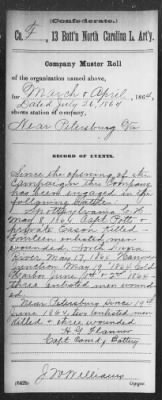 (Confederate.)
Co. F, 13 Batt'n North Carolina L. Art'y.
Company Muster Roll
of the organization named above,
for March & April, 1864.
Dated July 26, 1864
shows station of company,
Near Petersburg Va
RECORD OF EVENTS.
Since the opening of the
Campaign this Company
has been engaged in the
following battles
Spottsylvania C.H.
May 1864
private Eason killed
fourteen enlisted men
wounded, North Anna
river May 1864 Hanover
Junction May 1864 Cold
Harbor June 1864
three enlisted men wound-
ed.
Near Petersburg since
June 1864, two enlisted men
killed & three wounded
H G Flanner
Capt Comd'g Battery
J W Williams